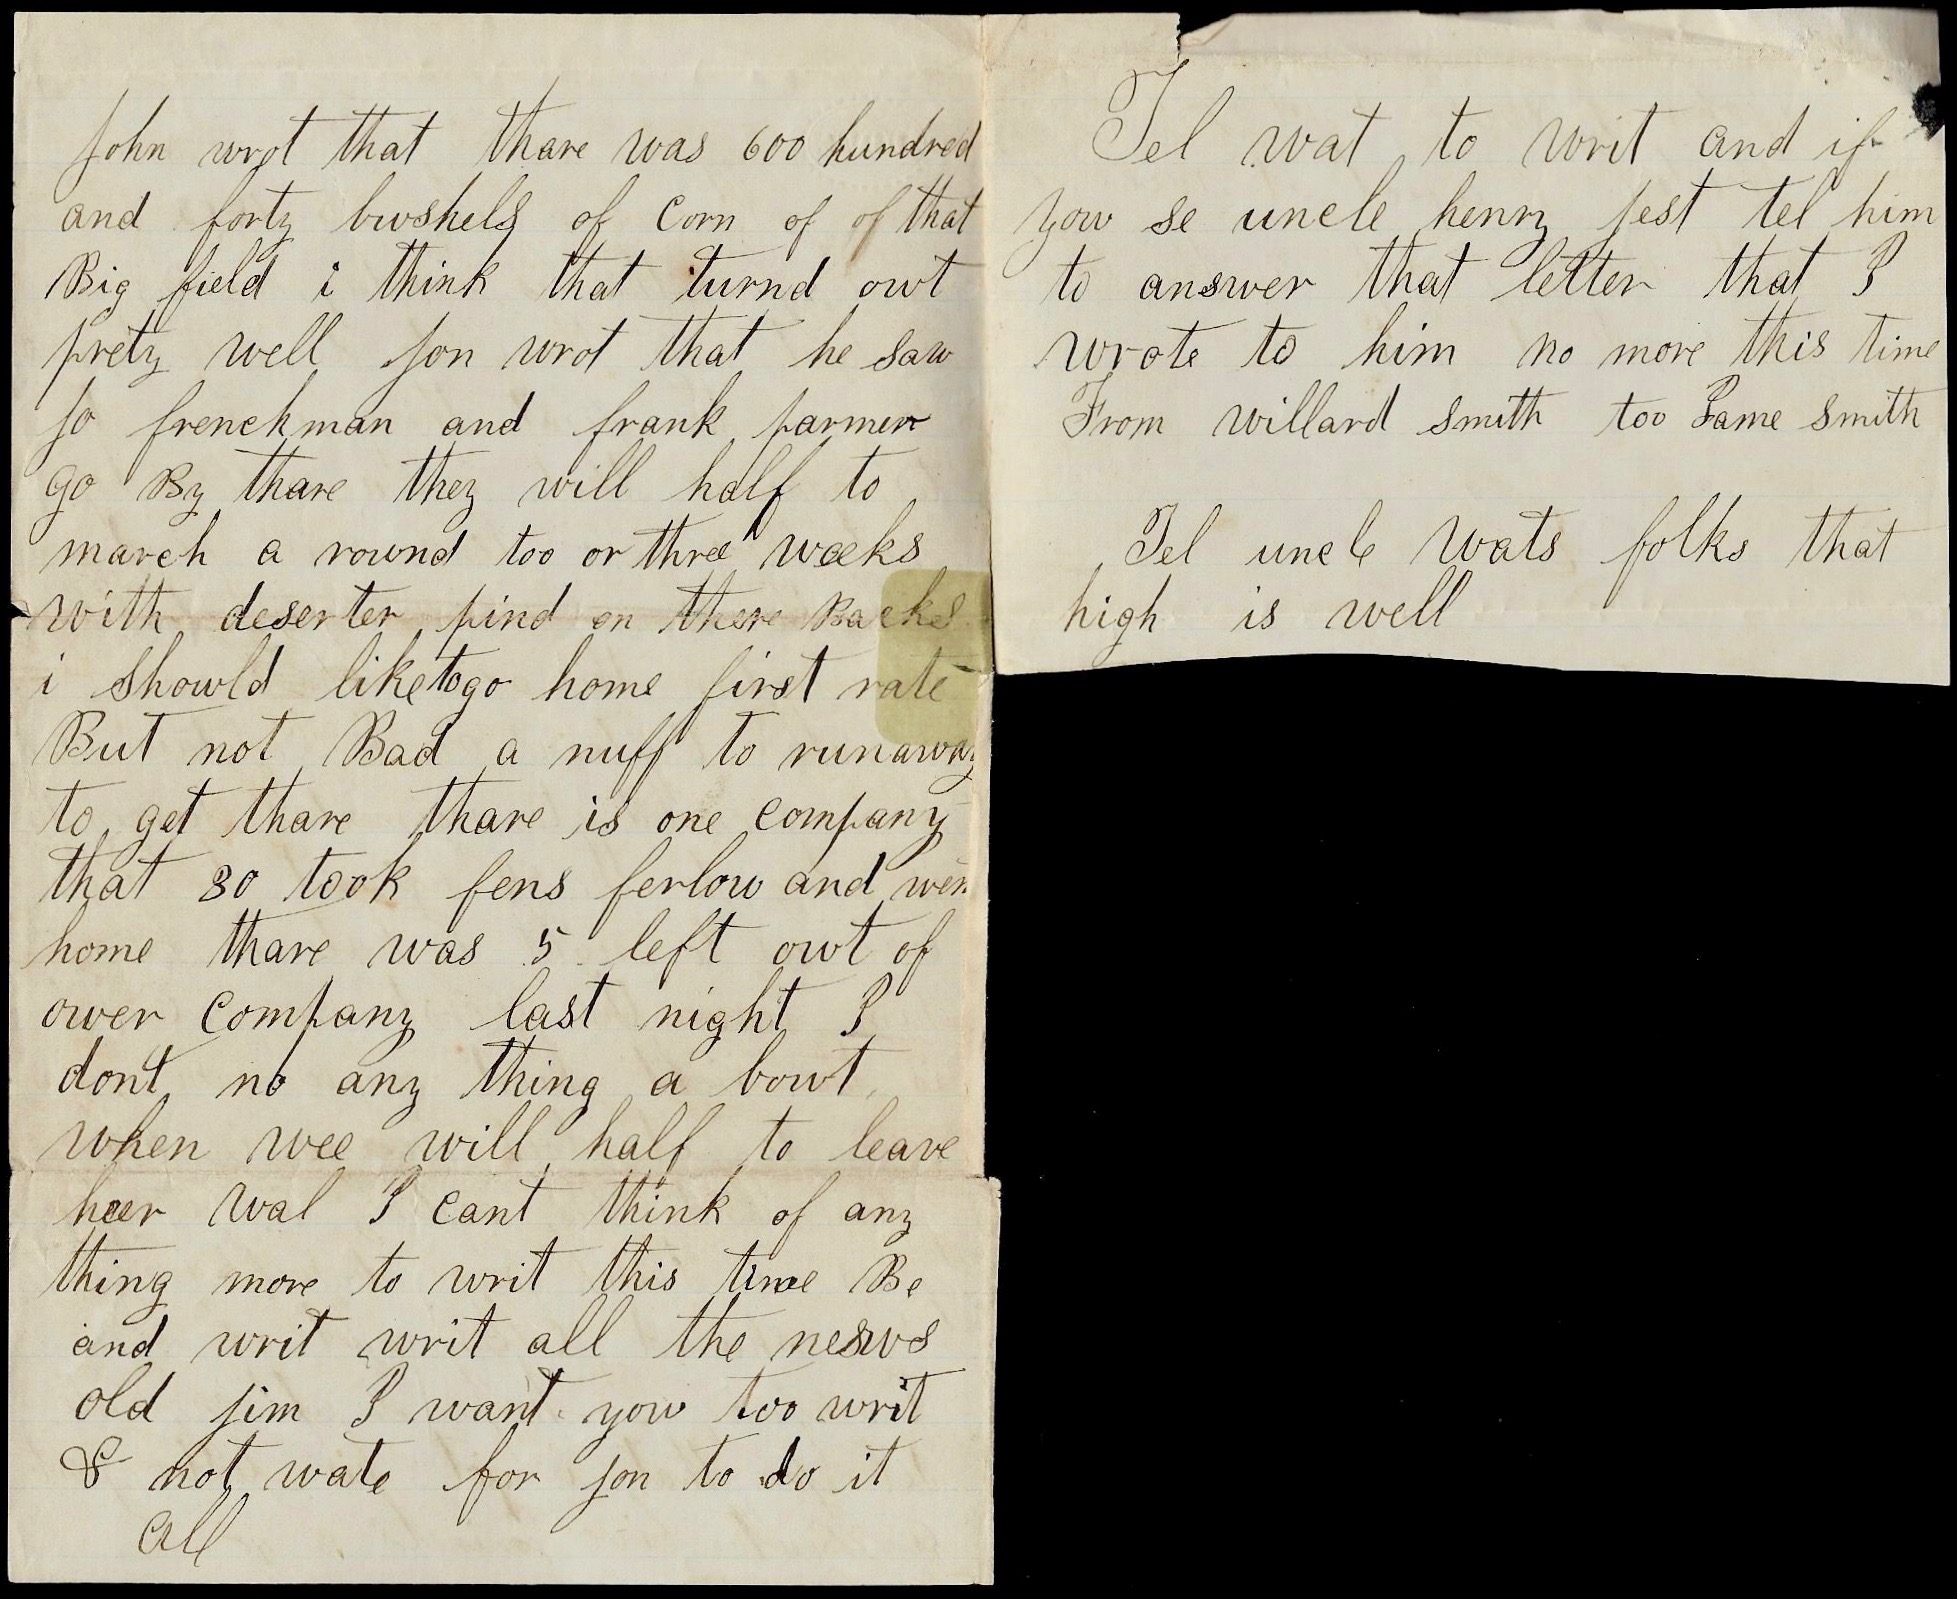 John wrot that thare was 600 hundred
and forty bushels of corn of of that
Big field i think that turnd owt
prety well jon wrot that he saw
jo frenchman and frank parmer
go By thare they will half to
march a rownd too or three weeks
with deserter pind on there Backs
i showld like to go home first rate
But not Bad a nuff to runaway
to get thare thare is one company
that 30 took fens ferlow and wen
home thare was 5 left owt of
ower company last night I
dont no any thing a bowt
when wee will half to leave
heer wal I cant think of any
thing more to writ this time Be
and writ writ all the nesws
old jim I want yow too writ
& not wate for jon to do it
all
Tel wat to writ and if
yow se uncle henry jest tel him
to answer that letter that I
wrote to him no more this time
From willard smith too Jame smith
Tel uncle wats folks that
high is well